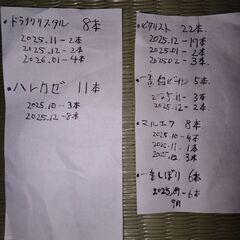 ・ドライクリスタル 8本
2025.11 - 2本
2025.12 - 2本
2026.01 - 4本
・ハレカゼ 11本
2025.10 - 3本
2025.12 - 8本
・ビタリスト 22本
2025.12 - 17本
2025.01 - 2本
202502 - 3本
・一番白ビール 5本
2025.11 - 3本
2025.12 - 2本
・マルエフ 8本
2025.10 - 4本
2025.11 - 1本
2025.12. 3本
・一番しぼり 6本
2025.09 - 6本
9月